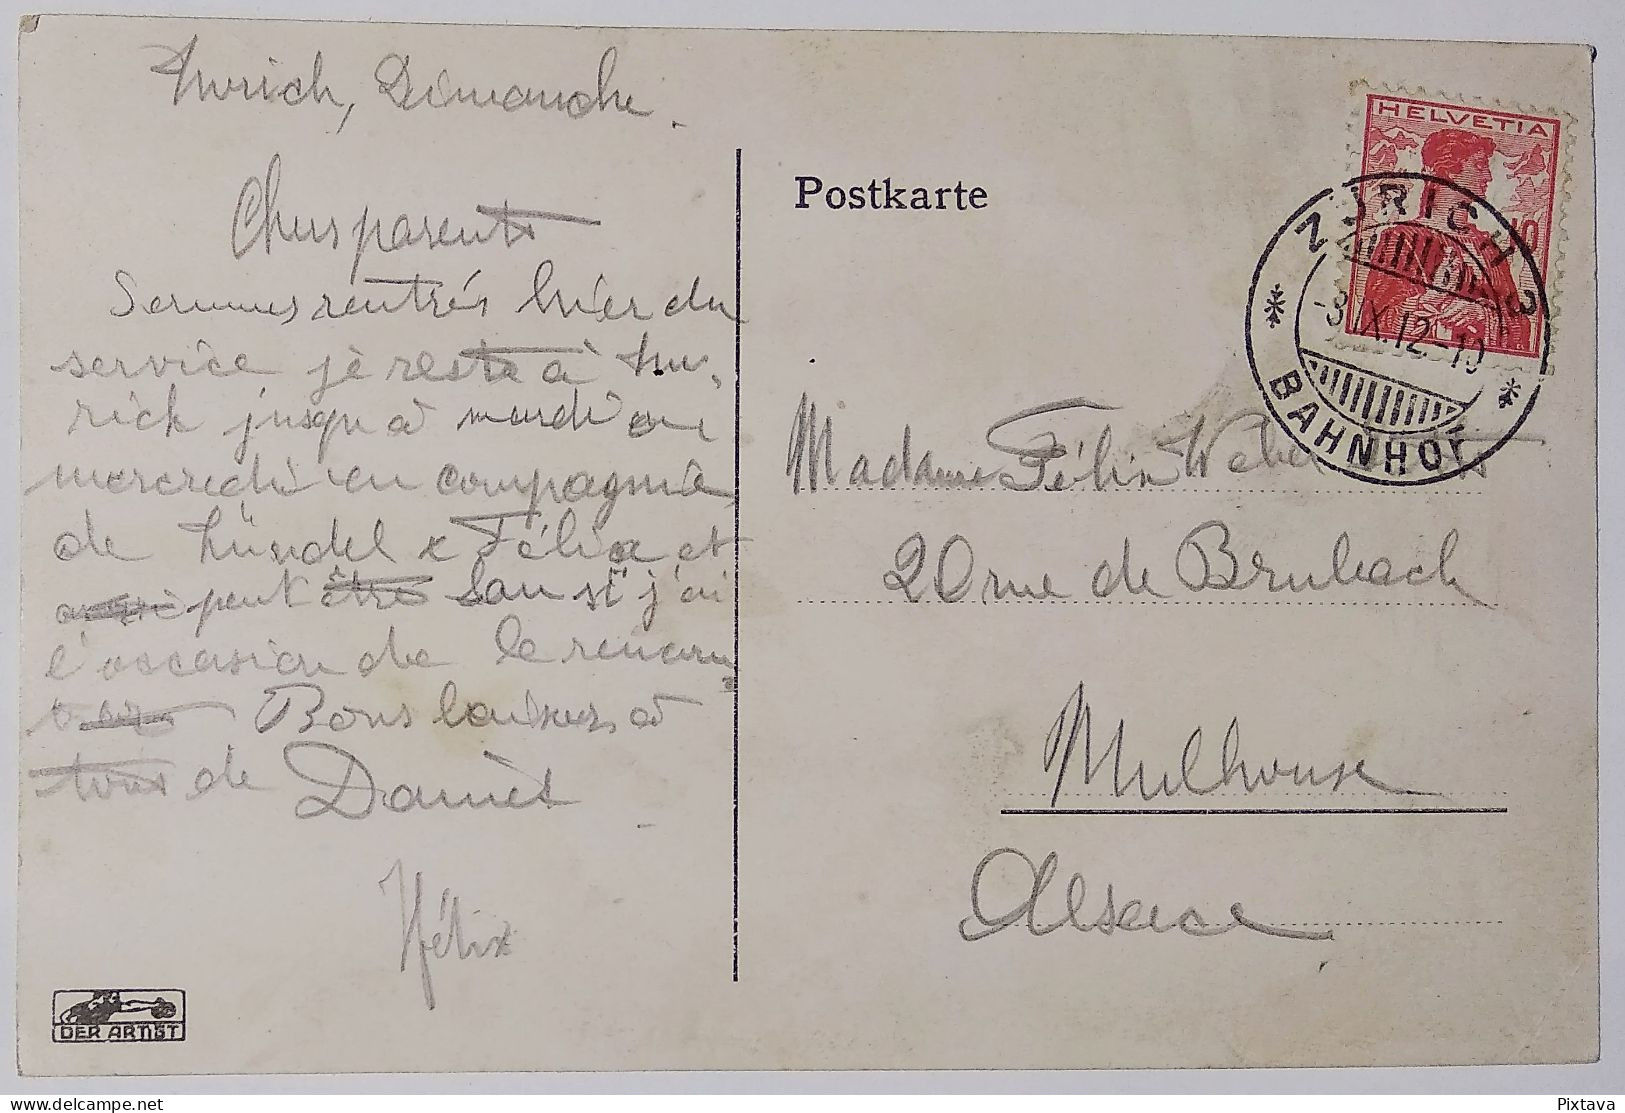 Zurich, Dimanche.
Chers parents
Sommes rentrés hier du
service, je reste à Zu-
rich jusqu'à mardi ou
mercredi en compagnie
de Hündel & Félix et
peut être Lausi j'ai
l'occasion de le rencon
trer Bons baisers à
tous de Daniel
Félix
DER ARTIST
Postkarte
HELVETIA
10
ZÜRICH 3
-8.IX.12.-10
BAHNHOF
Madame Félix Weber
20 rue de Brubach
Mulhouse
Alsace
Pixtava